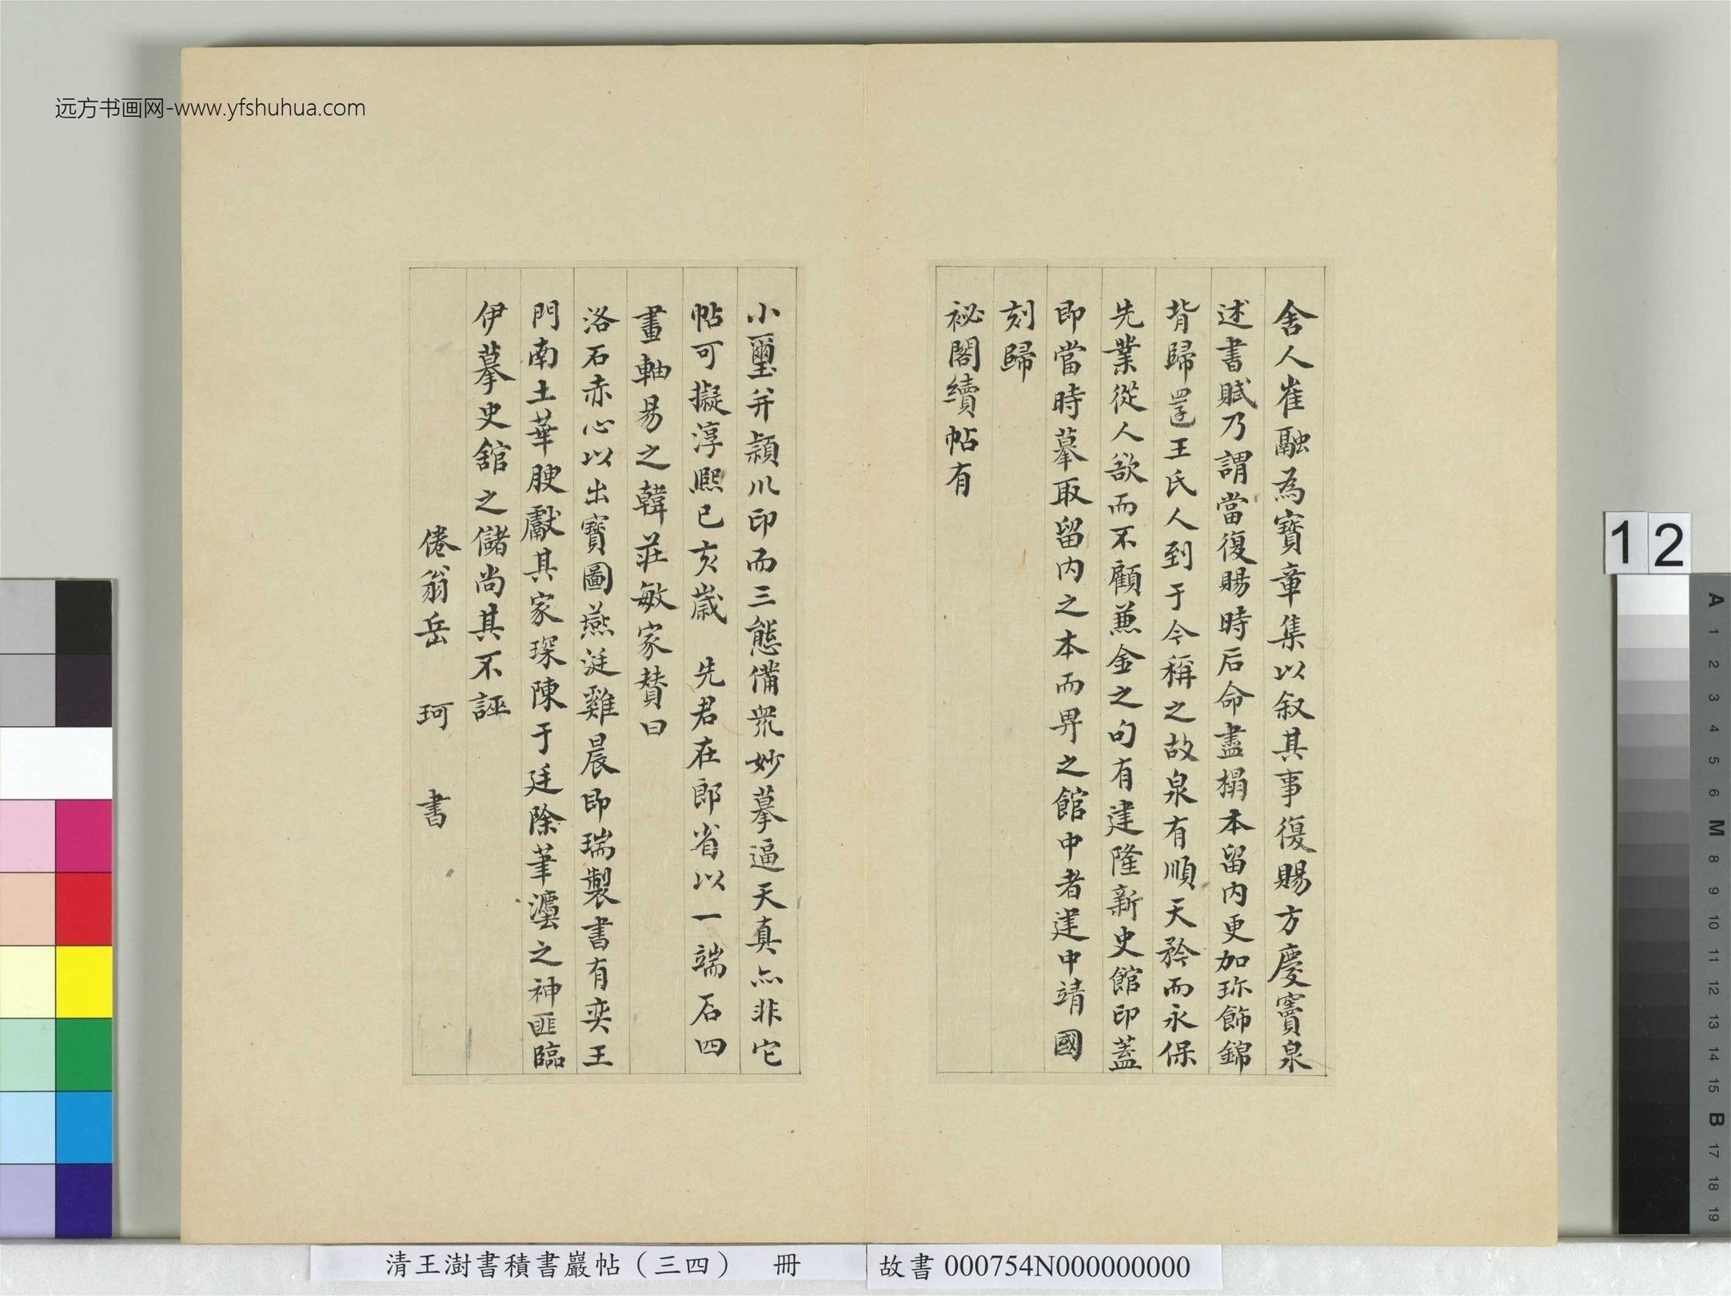 远方书画网-www.yfshuhua.com
舍人崔融為寶章集以叙其事復賜方慶竇泉
述書賦乃謂當復賜時后命盡搨本留內更加珎飾錦
背歸還王氏人到于今稱之故泉有順天矜而永保
先業從人欲而不顧兼金之句有建隆新史館印蓋
即當時摹取留內之本而畀之館中者建中靖國
刻歸
祕閣續帖有
小璽并潁川印而三態備眾妙摹逼天真亦非它
帖可擬淳熙已亥歲 先君在郎省以一端石四
畫軸易之韓莊敏家贊曰
洛石赤心以出寶圖燕涏雞晨即瑞製書有奕王
門南土華腴獻其家琛陳于廷除筆灋之神匪臨
伊摹史舘之儲尚其不誣
倦翁岳 珂 書
12
A
1
2
3
4
5
6
M
8
9
10
11
12
13
14
15
B
17
18
19
清王澍書積書巖帖（三四） 冊
故書 000754N000000000